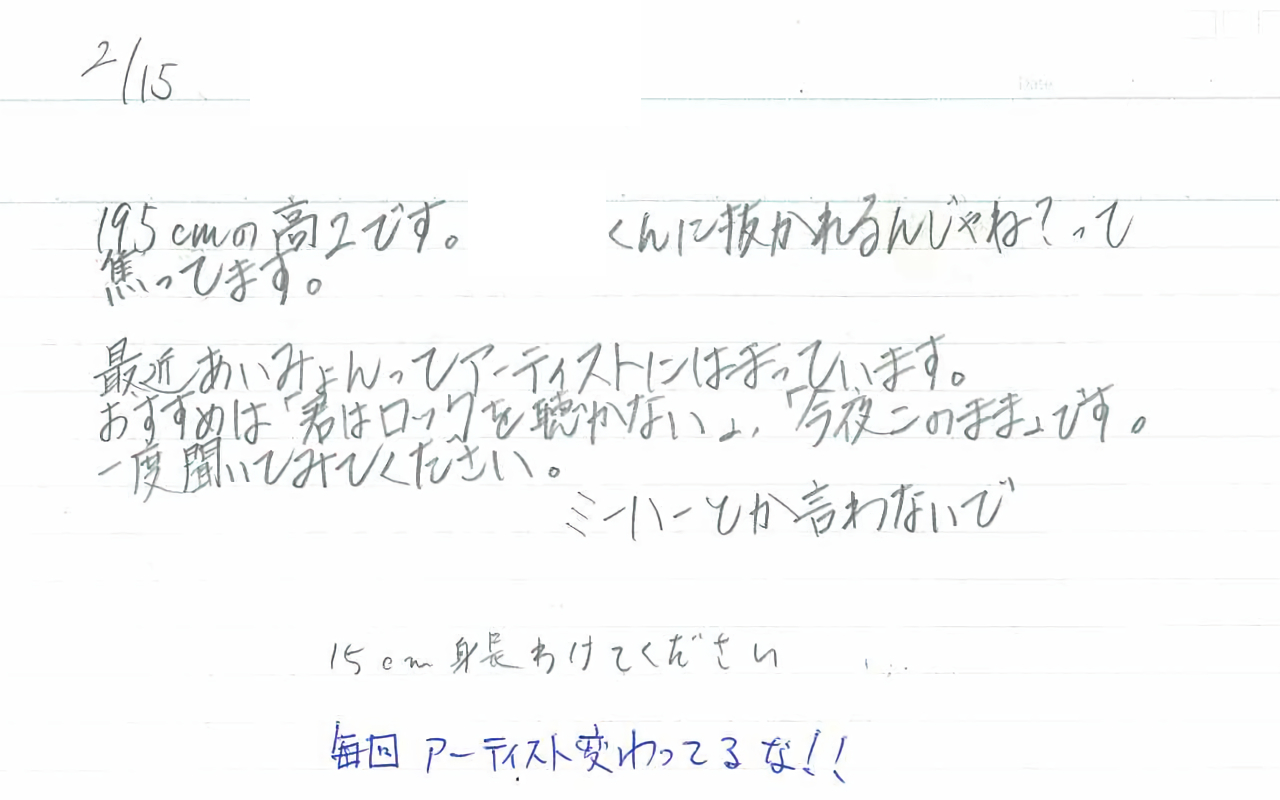 2/15
Date
195cmの高2です。 くんに抜かれるんじゃね?って
焦ってます。
最近あいみょんってアーティストにはまっています。
おすすめは「君はロックを聴かない」,「今夜このまま」です。
一度聞いてみてください。
ミーハーとか言わないで
15cm身長わけてください
毎回 アーティスト変わってるな!!